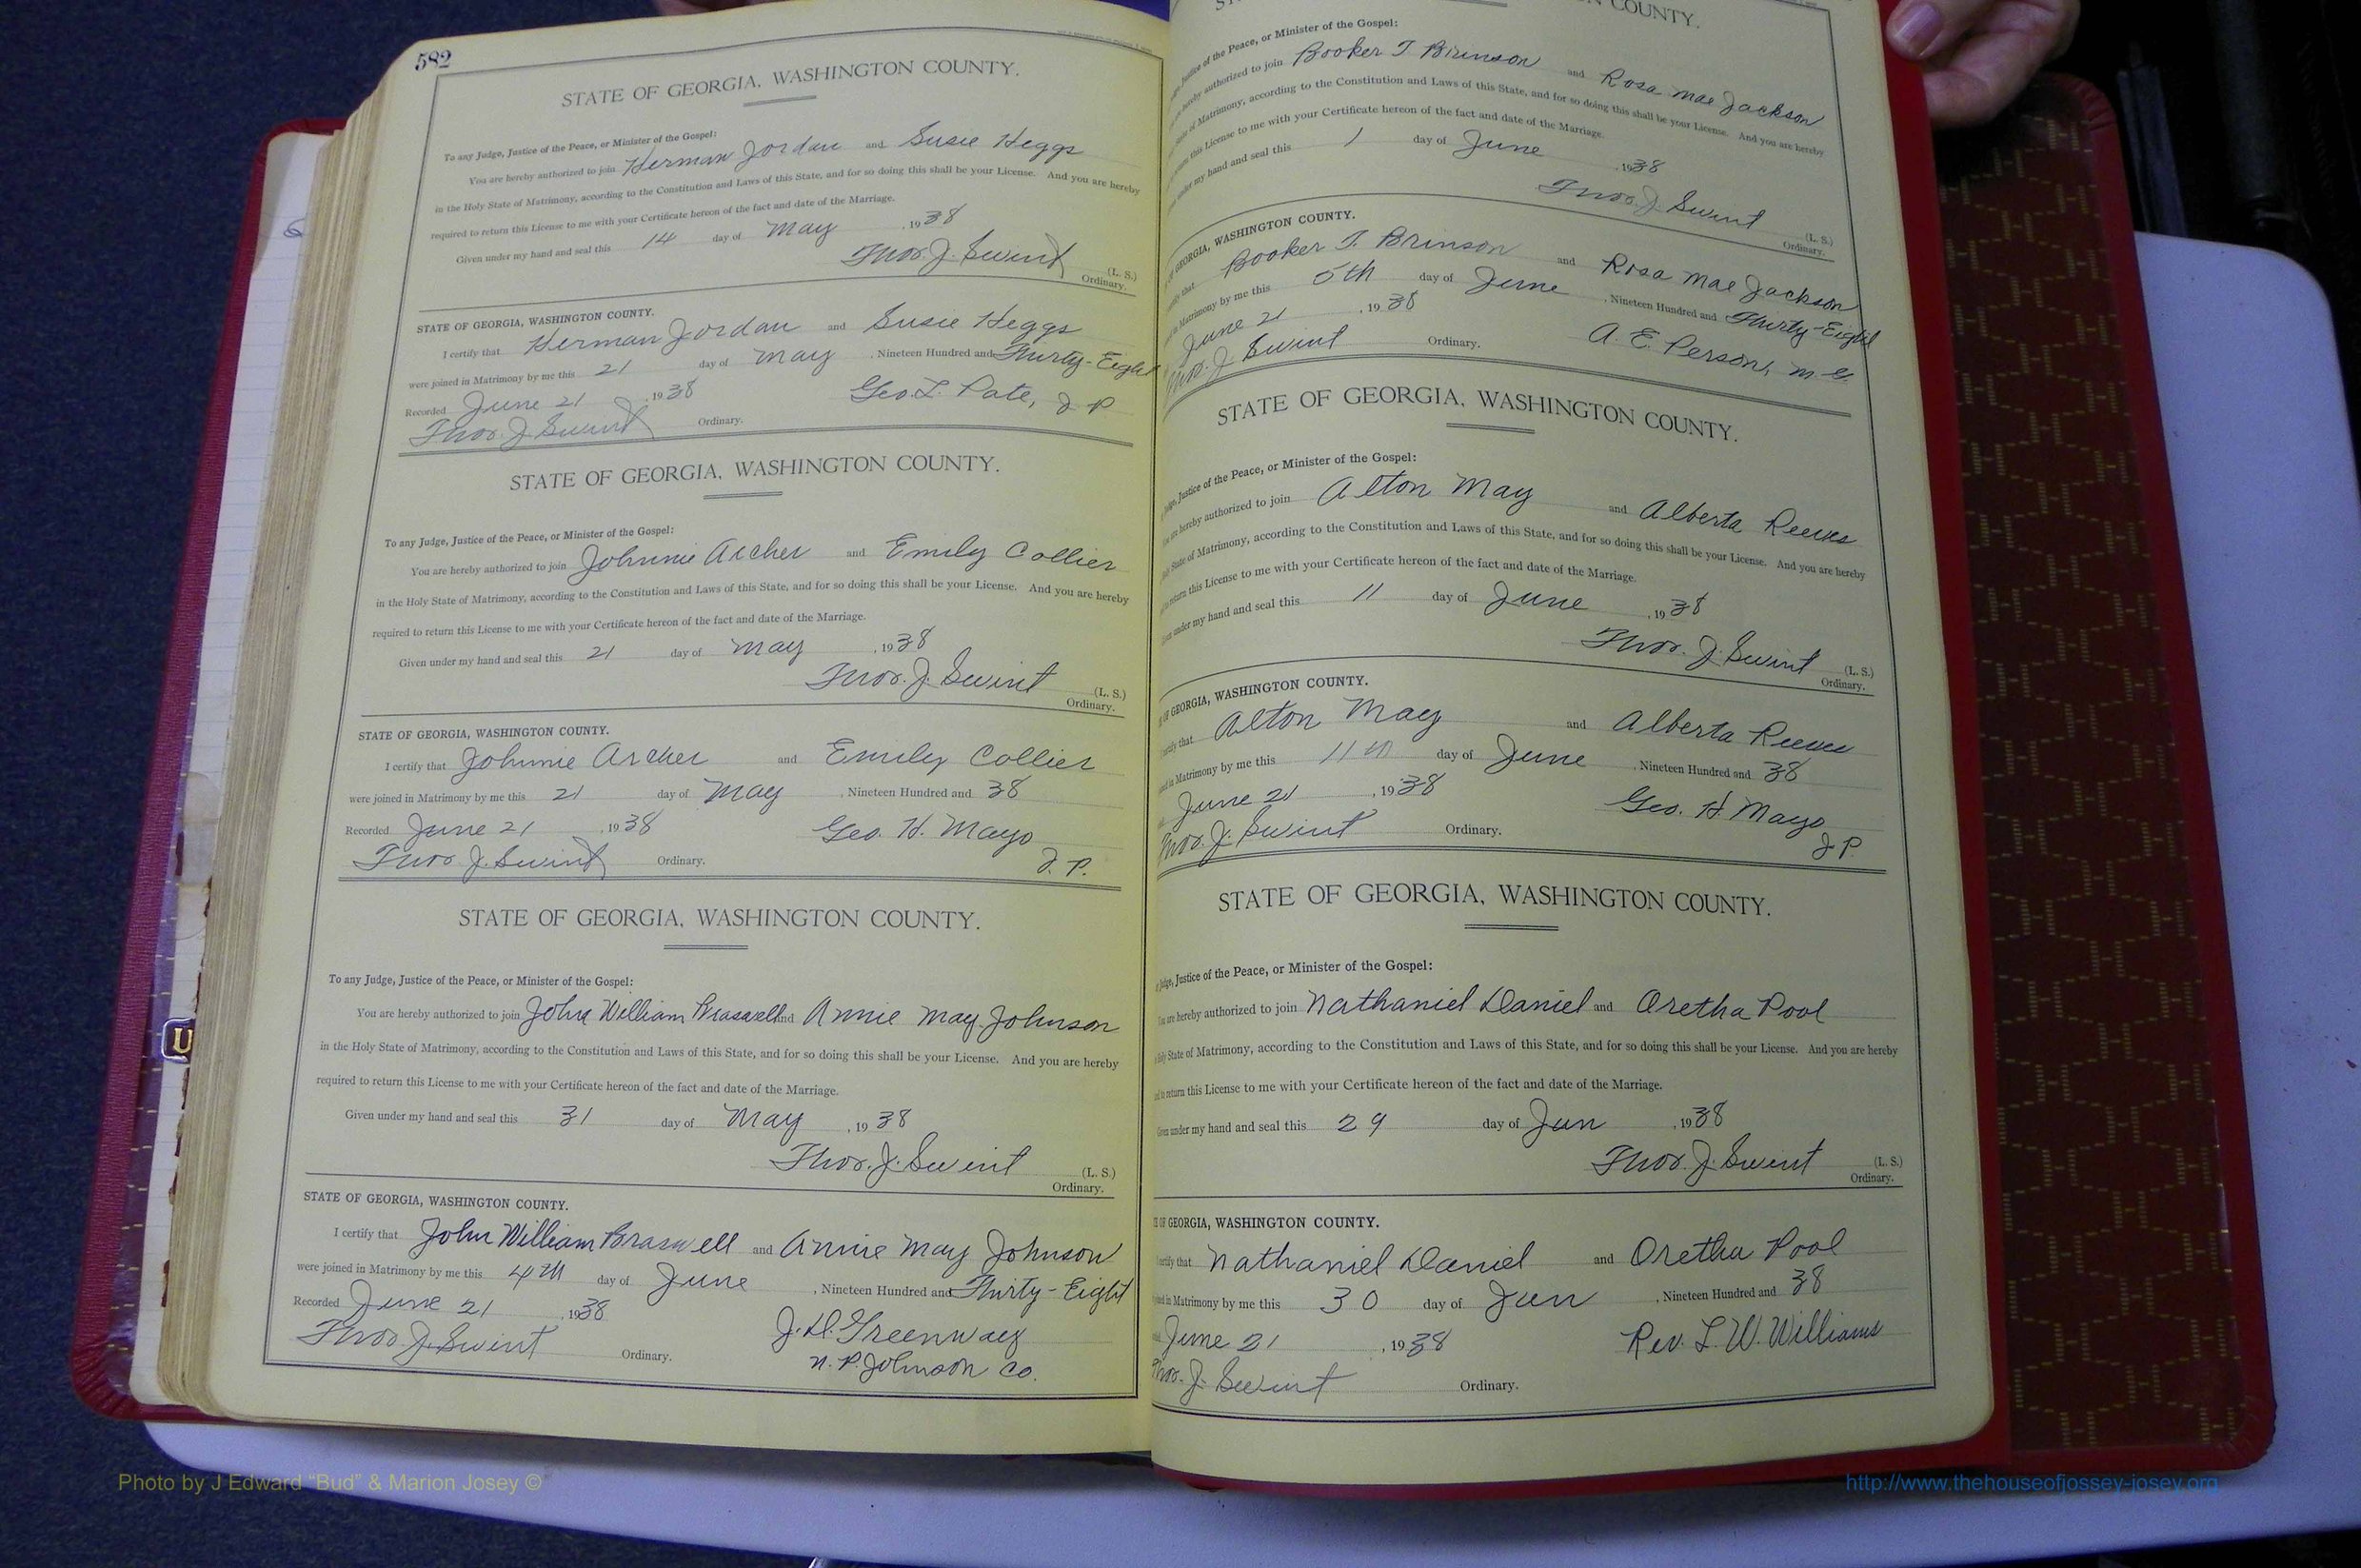 582
STATE OF GEORGIA, WASHINGTON COUNTY.
To any Judge, Justice of the Peace, or Minister of the Gospel:
You are hereby authorized to join Herman Jordan and Susie Heggs
in the Holy State of Matrimony, according to the Constitution and Laws of this State, and for so doing this shall be your License. And you are hereby
required to return this License to me with your Certificate hereon of the fact and date of the Marriage.
Given under my hand and seal this 14 day of May, 1938
Thos. J. Swint (L. S.)
Ordinary.
STATE OF GEORGIA, WASHINGTON COUNTY.
I certify that Herman Jordan and Susie Heggs
were joined in Matrimony by me this 21 day of May, Nineteen Hundred and Thirty-Eight
Recorded June 21, 1938 Geo. L. Pate, J P
Thos. J. Swint Ordinary.
STATE OF GEORGIA, WASHINGTON COUNTY.
To any Judge, Justice of the Peace, or Minister of the Gospel:
You are hereby authorized to join Johnnie Archer and Emily Collier
in the Holy State of Matrimony, according to the Constitution and Laws of this State, and for so doing this shall be your License. And you are hereby
required to return this License to me with your Certificate hereon of the fact and date of the Marriage.
Given under my hand and seal this 21 day of May, 1938
Thos. J. Swint (L. S.)
Ordinary.
STATE OF GEORGIA, WASHINGTON COUNTY.
I certify that Johnnie Archer and Emily Collier
were joined in Matrimony by me this 21 day of May, Nineteen Hundred and 38
Recorded June 21, 1938 Geo. H. Mayo
Thos J. Swint Ordinary. J. P.
STATE OF GEORGIA, WASHINGTON COUNTY.
To any Judge, Justice of the Peace, or Minister of the Gospel:
You are hereby authorized to join John William Braswell and Annie May Johnson
in the Holy State of Matrimony, according to the Constitution and Laws of this State, and for so doing this shall be your License. And you are hereby
required to return this License to me with your Certificate hereon of the fact and date of the Marriage.
Given under my hand and seal this 31 day of May, 1938
Thos. J. Swint (L. S.)
Ordinary.
STATE OF GEORGIA, WASHINGTON COUNTY.
I certify that John William Braswell and Annie May Johnson
were joined in Matrimony by me this 4th day of June, Nineteen Hundred and Thirty-Eight
Recorded June 21, 1938 J. D. Greenway
Thos J. Swint Ordinary. N. P. Johnson Co.
COUNTY.
Justice of the Peace, or Minister of the Gospel:
hereby authorized to join Booker T Brinson and Rosa Mae Jackson
State of Matrimony, according to the Constitution and Laws of this State, and for so doing this shall be your License. And you are hereby
return this License to me with your Certificate hereon of the fact and date of the Marriage.
under my hand and seal this 1 day of June, 1938
Thos. J. Swint (L. S.)
Ordinary.
GEORGIA, WASHINGTON COUNTY.
that Booker T. Brinson and Rosa Mae Jackson
in Matrimony by me this 5th day of June, Nineteen Hundred and Thirty-Eight
June 21, 1938 A. E. Person, M. G.
Thos. J. Swint Ordinary.
STATE OF GEORGIA, WASHINGTON COUNTY.
Justice of the Peace, or Minister of the Gospel:
hereby authorized to join Alton May and Alberta Reeves
State of Matrimony, according to the Constitution and Laws of this State, and for so doing this shall be your License. And you are hereby
return this License to me with your Certificate hereon of the fact and date of the Marriage.
under my hand and seal this 11 day of June, 1938
Thos. J. Swint (L. S.)
Ordinary.
OF GEORGIA, WASHINGTON COUNTY.
that Alton May and Alberta Reeves
in Matrimony by me this 11th day of June, Nineteen Hundred and 38
June 21, 1938 Geo. H. Mayo
Thos. J. Swint Ordinary. J P.
STATE OF GEORGIA, WASHINGTON COUNTY.
Judge, Justice of the Peace, or Minister of the Gospel:
You are hereby authorized to join Nathaniel Daniel and Oretha Pool
Holy State of Matrimony, according to the Constitution and Laws of this State, and for so doing this shall be your License. And you are hereby
to return this License to me with your Certificate hereon of the fact and date of the Marriage.
Given under my hand and seal this 29 day of Jan, 1938
Thos. J. Swint (L. S.)
Ordinary.
OF GEORGIA, WASHINGTON COUNTY.
certify that Nathaniel Daniel and Oretha Pool
in Matrimony by me this 30 day of Jan, Nineteen Hundred and 38
June 21, 1938 Rev. L. W. Williams
Thos. J. Swint Ordinary.
U
Photo by J Edward “Bud” & Marion Josey ©
http://www.thehouseofjossey-josey.org